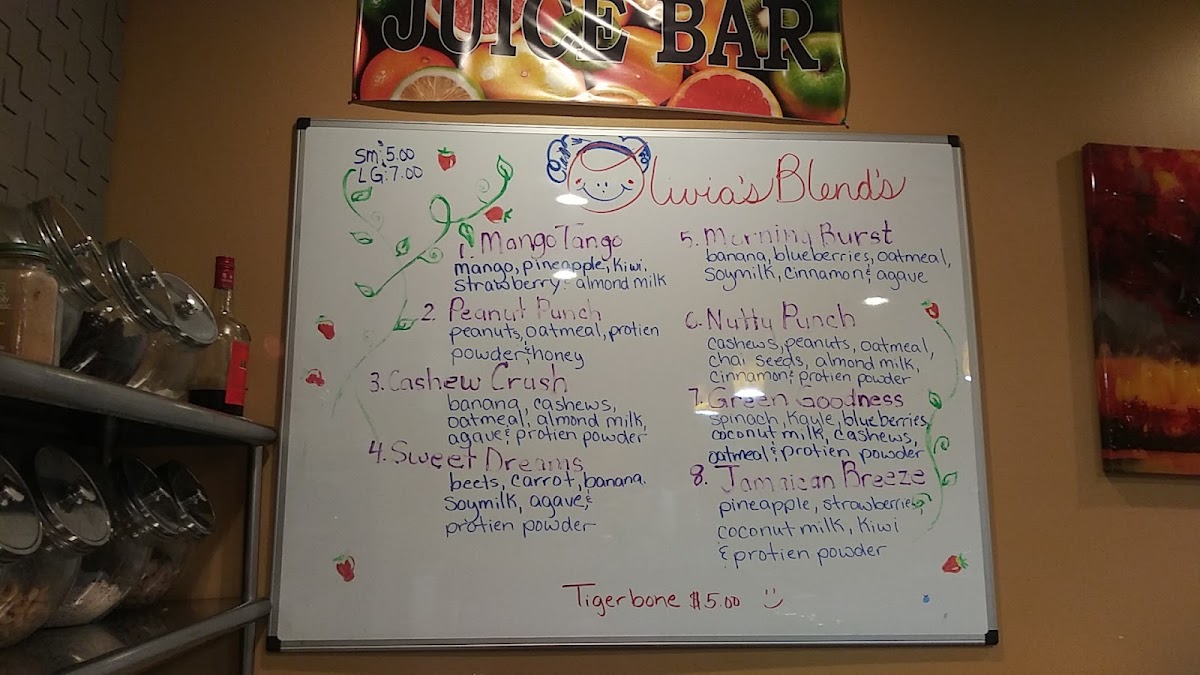 JUICE BAR
Sm: 5.00
LG: 7.00
Olivia's Blend's
1. Mango Tango
mango, pineapple, Kiwi
Strawberry & almond milk
2. Peanut Punch
peanuts, oatmeal, protien
powder & honey
3. Cashew Crush
banana, cashews,
oatmeal, almond milk,
agave & protien powder
4. Sweet Dreams
beets, carrot, banana.
Soymilk, agave, &
protien powder
5. Morning Burst
banana, blueberries, oatmeal,
Soymilk, Cinnamon & agave
6. Nutty Punch
cashews, peanuts, oatmeal,
chai seeds, almond milk,
Cinnamon & protien powder
7. Green Goodness
spinach, Kayle, blueberries,
coconut milk, cashews,
oatmeal & protien powder
8. Jamaican Breeze
pineapple, strawberries,
coconut milk, Kiwi
& protien powder
Tigerbone $5.00